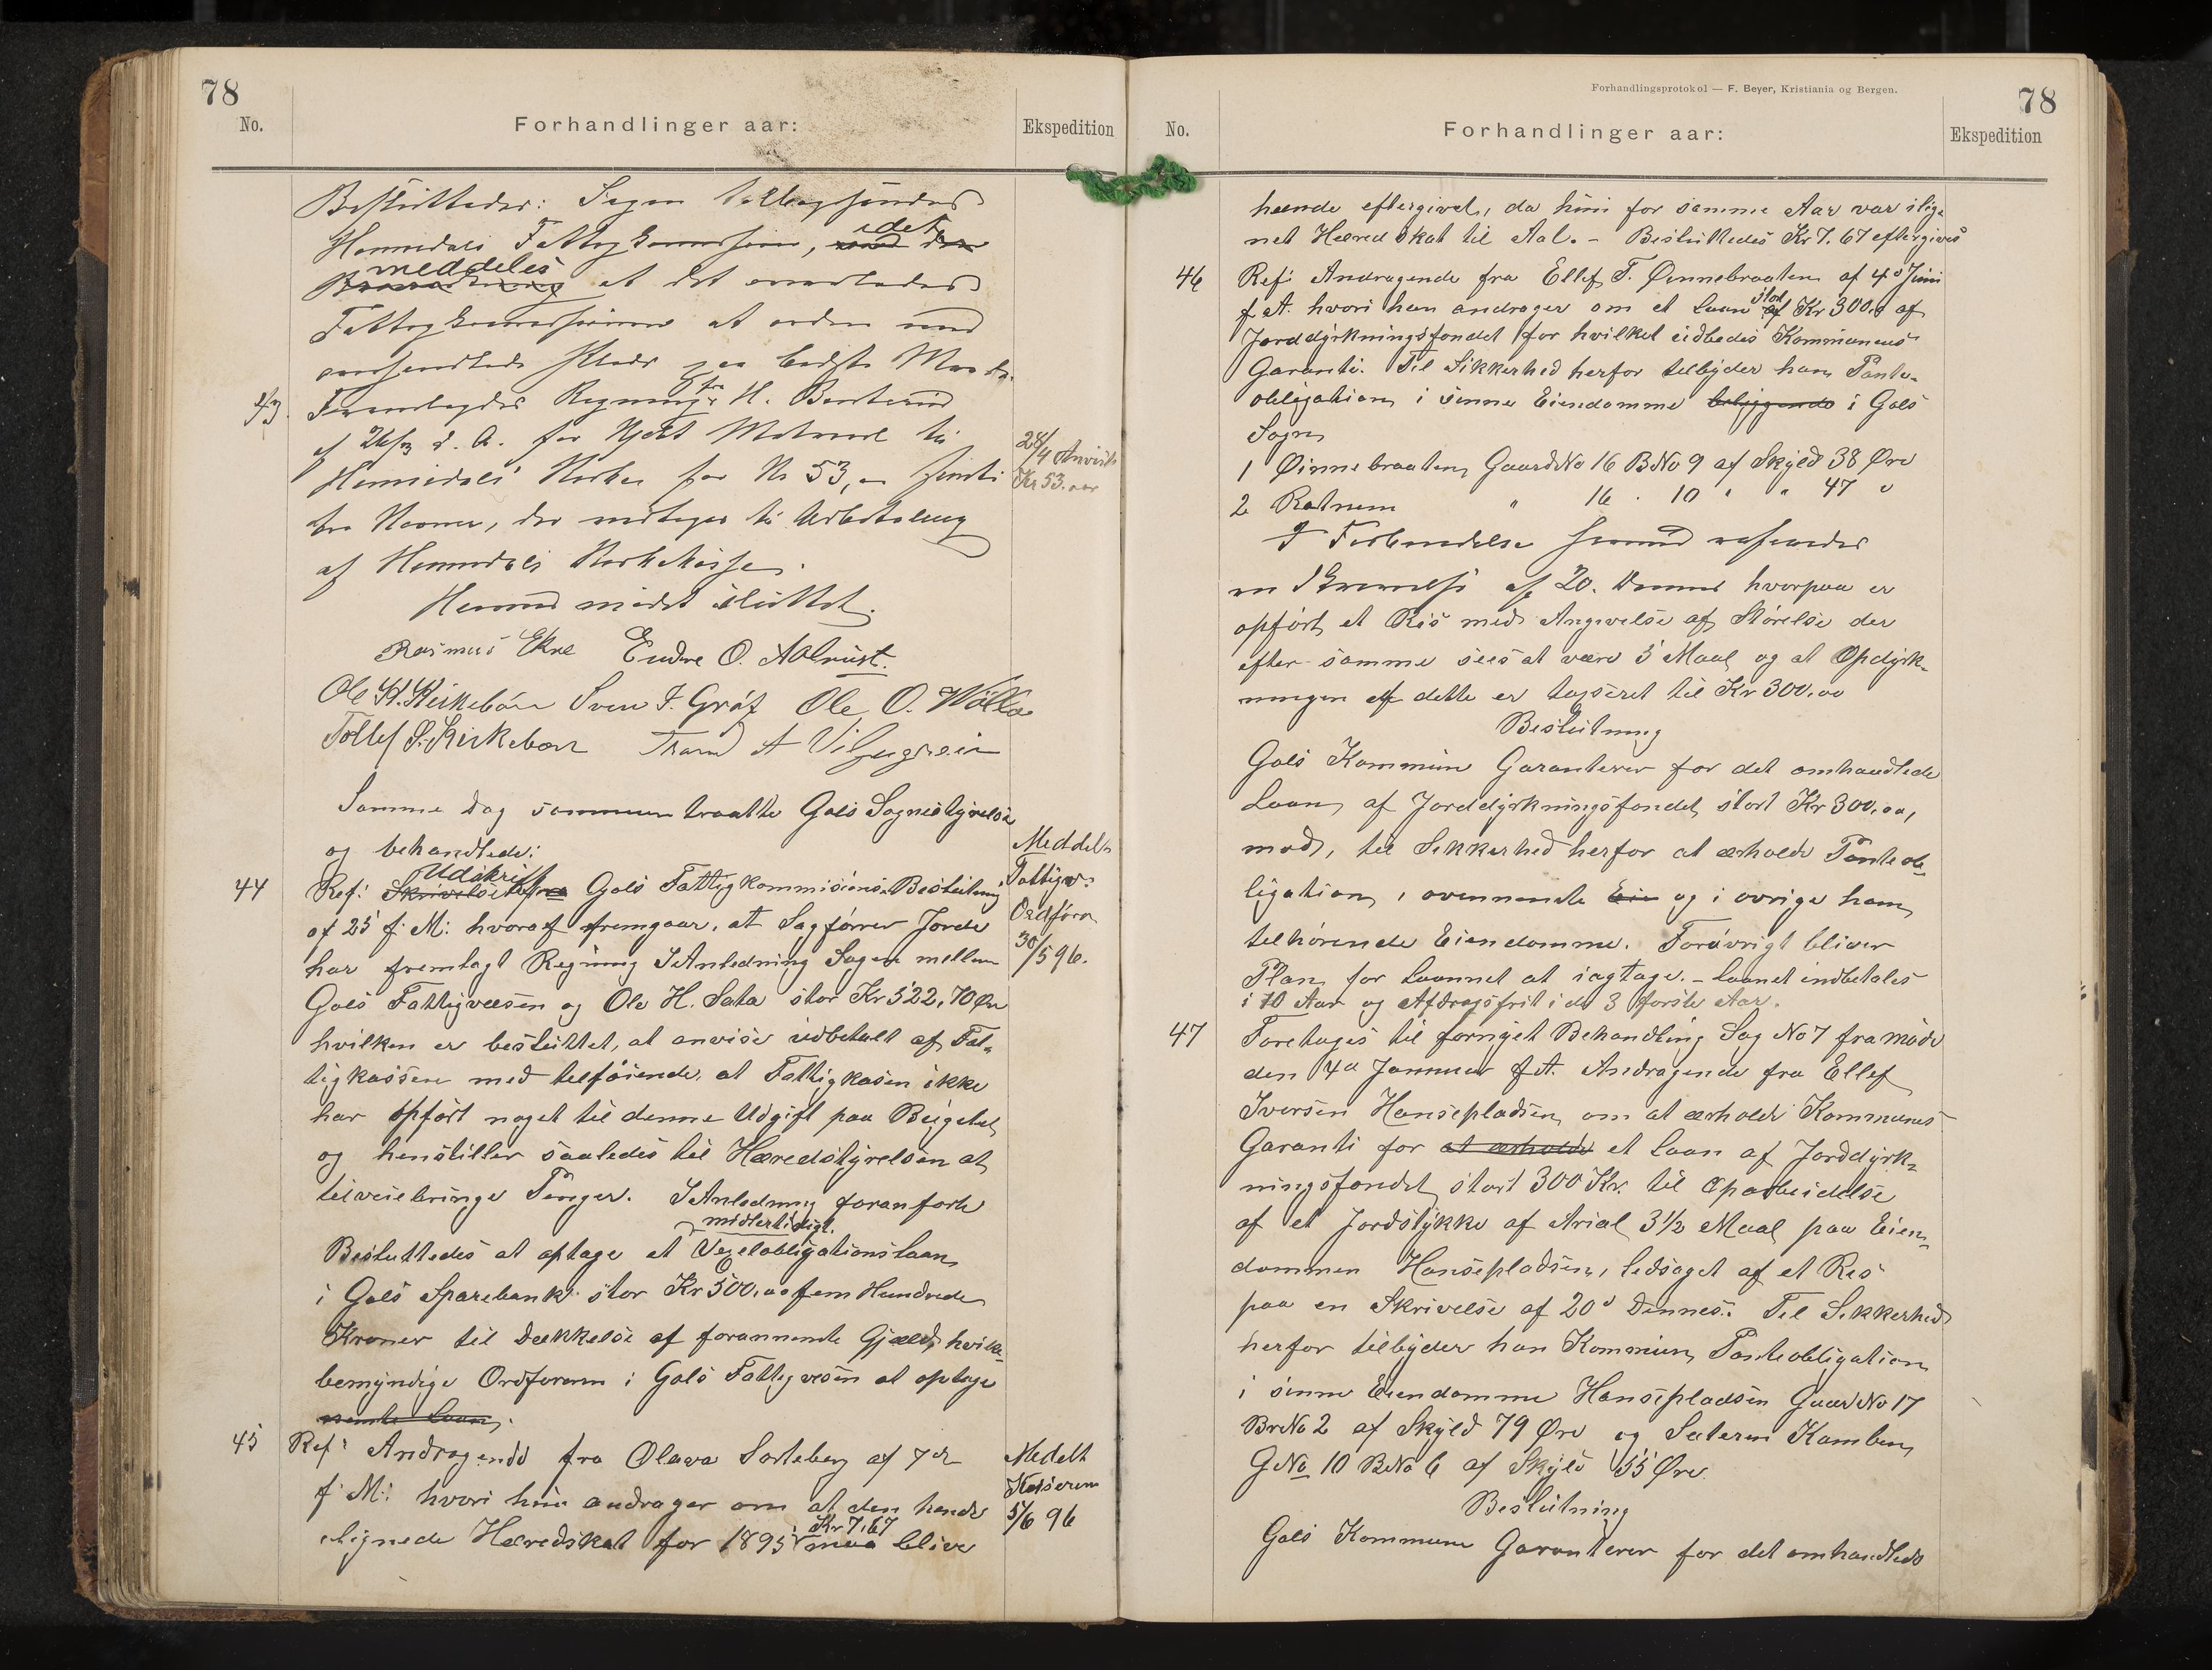 78
No.
Forhandlinger aar:
Ekspedition
Besluttedes: Sagen tilbagesendes
Hemsedals Fattigkommission, idet
meddeles at det overlades
Fattigkommissionen at ordne med
omhandlede paa bedste Maade.
43. Foredragdes Regning fra H.
af 26/3 d. A. for kjøbt Materiel til
Hemsedals Kirke for Kr 53,00 femti
tre Kroner, der vedtages til Udbetaling
af Hemsedals Kirkekasse.
28/4 Anvist
Kr 53.00
Hermed mødet sluttet.
Rasmus Ekre Endre O. Aalrust.
Ole K. Kirkebøen Sven T. Grøt Ole O. Wøllo
Tollef S. Kirkebøen Trond A
Samme Dag sammentraatte Gols Sognestyrelse
og behandlede:
44 Ref: Skrivelse fra Udskrift af Gols Fattigkommisions Beslutning
af 25 f. M: hvoraf fremgaar, at Sagfører Jorde
har fremlagt Regning I Anledning Sagen mellem
Gols Fattigvæsen og Ole H. Sata stor Kr 522,70 Øre
hvilken er besluttet, at anvise udbetalt af Fat-
tigkassen med tilføiende, at Fattigkasen ikke
har opført noget til denne Udgift paa Bugetet
og henstiller saaledes til Heredstyrelsen at
tilveiebringe Penger. I Anledning foranførte
midlertidigt
Besluttedes at optage et Vexelobligationslaan
i Gols Sparebank stor Kr 500,00 fem Hundrede
Kroner til Dækkelse af forannevnte Gjæld, hvilke
bemyndige Ordføreren i Gols Fattigvesen at optage
nevnte Laan.
Meddelt
Fattigv.
Ordføren
30/5 96.
45 Ref: Andragende fra Olava Sorteberg af 7de
f. M: hvori hun andrager om at den hende
Kr 7,67
ilignede Heredskat for 1895 maa blive
Medelt
Kasseren
5/6 96
Forhandlingsprotokol — F. Beyer, Kristiania og Bergen.
78
No.
Forhandlinger aar:
Ekspedition
hende eftergivet, da hun for samme Aar var ilig-
net Heredskat til Aal. - Besluttedes Kr 7.67 eftergives
46 Ref: Andragende fra Ellef T. Øinnebraaten af 4d Juni
f. A. hvori han andrager om et Laan stor af Kr 300,0 af
Jorddyrkningsfondet for hvilket udbedes Kommunens
Garanti. Til Sikkerhed herfor tilbyder han Pante-
obligation i sinne Eiendomme beliggende i Gols
Sogn
1 Øinnebraaten Gaard No 16 BNo 9 af Skyld 38 Øre
2 Rotnem " 16 " 10 " " 47 "
I Forbindelse hermed
en Skrivelse af 20. Dennes hvorpaa er
opført et Ris med Angivelse af Størelse der
efter samme sees at være 5 Maal og at Opdyrk-
ningen af dette er taxseret til Kr 300,00
Beslutning
Gols Kommune Garanterer for det omhandlede
Laan af Jorddyrkningsfondet stort Kr 300,00,
mod, til Sikkerhed herfor at erholde Panteob-
ligation i ovennevnte Ein og i øvrige ham
tilhørende Eiendomme. Forøvrigt bliver
Plan for Laannet at iagtage. - Laanet indbetales
i 10 Aar og Afdragsfrit i de 3 første Aar.
47 Foretages til fornyet Behandling Sag No 7 fra møde
den 4d Januar f. A. Andragende fra Ellef
Iversen Hansepladsen om at erholde Kommunes
Garanti for at erholde et Laan af Jorddyrk-
ningsfondet stort 300 Kr. til Oparbeidelse
af et Jordstykke af Arial 3½ Maal paa Eien-
dommen Hansepladsen, ledsaget af et Ris
paa en Skrivelse af 20d Dennes. Til Sikkerhed
herfor tilbyder han Kommun Panteobligation
i sinne Eiendomme Hansepladsen Gaard No 17
BrNo 2 af Skyld 79 Øre og Sæteren Kamben
GNo 10 BNo 6 af Skyld 55 Øre
Beslutning
Gols Kommune Garanterer for det omhandlede